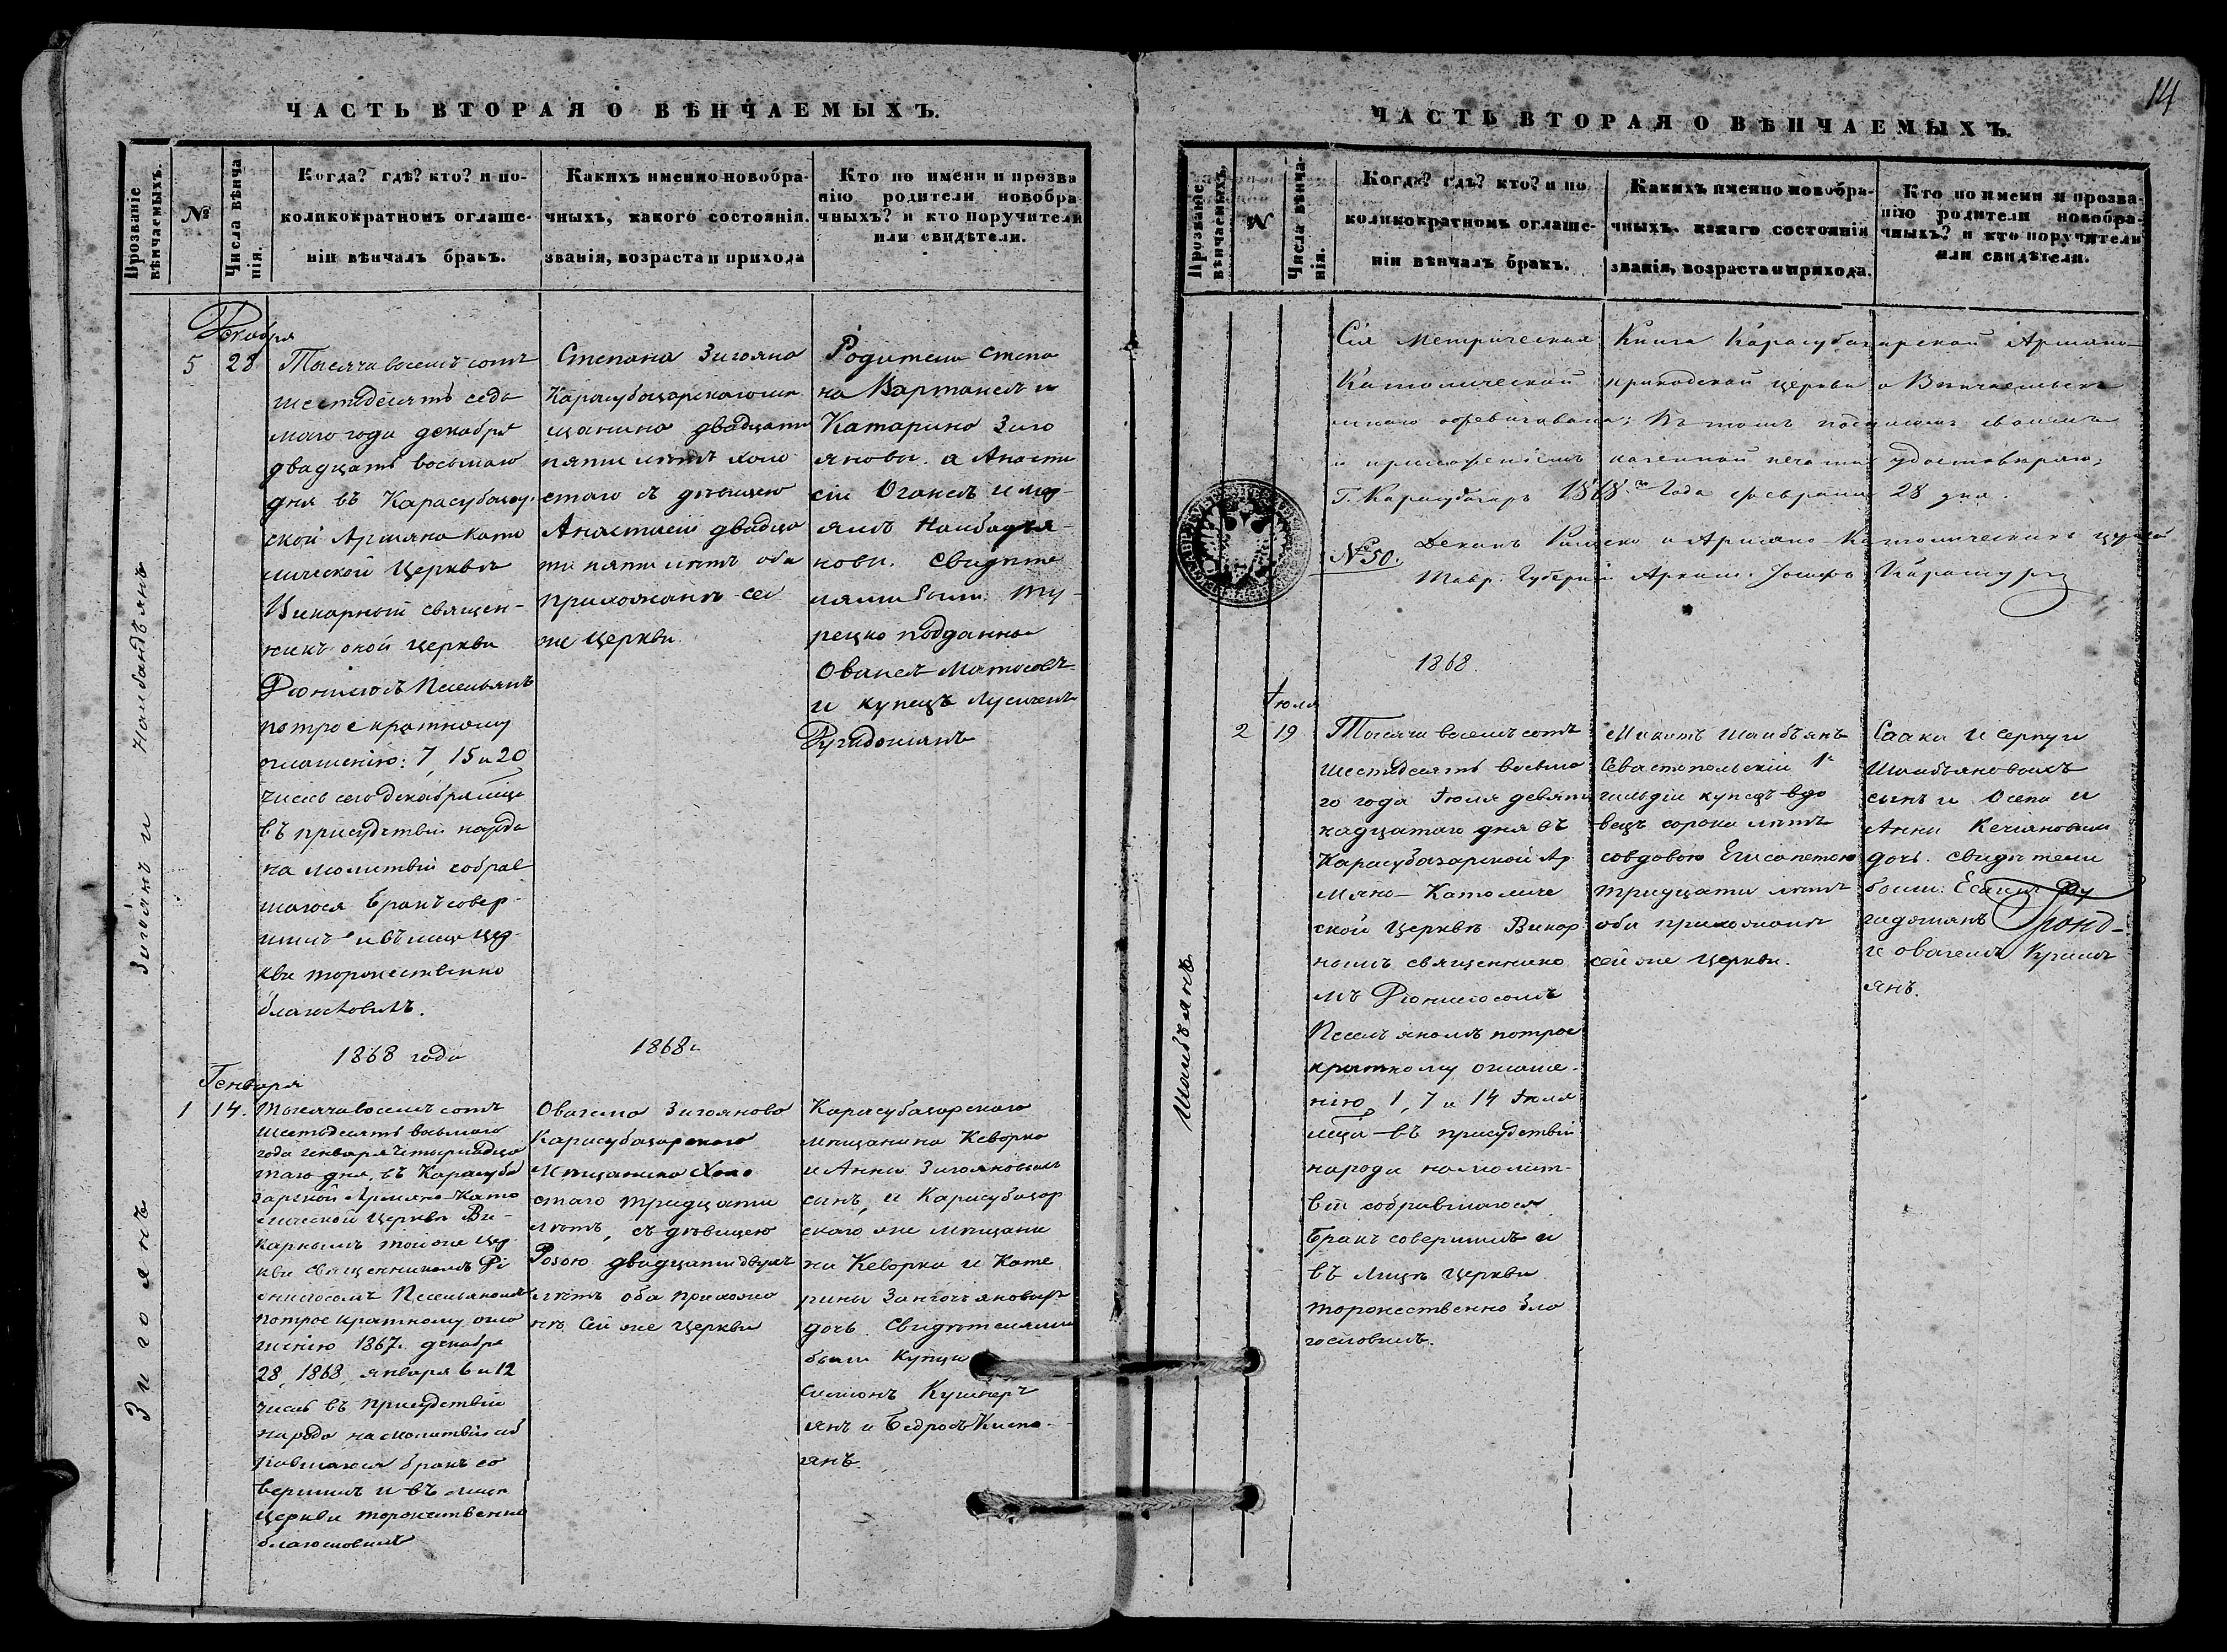 ЧАСТЬ ВТОРАЯ О ВѢНЧАЕМЫХЪ.
Прозваніе вѣнчаемыхъ.
№
Числа вѣнчанія.
Когда? гдѣ? кто? и по-
коликократномъ оглаше-
ніи вѣнчалъ бракъ.
Какихъ именно новобра-
чныхъ, какого состоянія.
званія, возраста и прихода
Кто по имени и прозва
нію родители новобра
чныхъ? и кто поручители
или свидѣтели.
Зигоянъ и Налбандъянъ
Декабря
5
28
Тысяча восемь сотъ
шестидесятъ седь
маго года декабря
двадцать восьмаго
дня въ Карасубазар
ской Армяно Като
лической Церквѣ
Викарный священ-
никъ оной церкви
Діонисіосъ Песельянъ
по трое кратному
оглашенію: 7, 15 и 20
числъ сего декабря мца
въ присудствіи народа
на молитвій собрав
шагося бракъ совер-
шилъ и въ лице цер-
кви торжественно
благословилъ.
Степана Зигояна
Карасубазарскаго мѣ
щанина двадцати
пяти лѣтъ холо
стаго съ дѣвицею
Анастасіей двадца
ти пяти лѣтъ оба
прихожанъ сей
же церкви.
Родители Степа
на Вартанесъ и
Катарина Зиго
яновы. а Анаста
сіи Оганесъ и
Налбандъя-
новы. свидѣте
лями были: Ту-
рецко подданно
Ованесъ Матосовъ
и купецъ Лусигенъ
Ругидошянъ
1868 года
1868 г.
Зигоянъ
Генваря
1
14.
Тысяча восемь сотъ
шестьдесятъ восьмаго
года генваря четырнадца
таго дня, въ Карасуба
зарской Армяно-Като
лической Церквѣ Ви-
карнымъ той же цер
кви священникомъ Ді
онисіосомъ Песельяномъ
по трое кратному огла
шенію 1867. декабря
28, 1868, января 6 и 12
числъ въ присудствіи
народа на молитвій соб
равшагося бракъ со
вершилъ и въ лице
церкви торжественно
благословилъ
Овагема Зигоянова
Карасубазарскаго
мѣщанина холо
стаго тридцати
лѣтъ, съ дѣвицею
Розою двадцати двухъ
лѣтъ оба прихожа
нъ сей же церкви
Карасубазарскаго
мѣщанина Кеворка
и Анны Зигояновыхъ
сынъ, и Карасубазар
скаго же мѣщани
на Кеворка и Кате
рины
дочь. Свидѣтелями
были купцы
Симонъ Кушнеръ
янъ и Бедросъ Киско-
янъ.
14
ЧАСТЬ ВТОРАЯ О ВѢНЧАЕМЫХЪ.
Прозваніе вѣнчаемыхъ.
№
Числа вѣнчанія.
Когда? гдѣ? кто? и по
коликократномъ оглаше-
ніи вѣнчалъ бракъ.
Какихъ именно новобра-
чныхъ, какаго состоянія
званія, возраста и прихода.
Кто по имени и прозва-
нію родители новобра-
чныхъ? и кто поручители
или свидѣтели.
Сія Метрическая Книга Карасубазарской Армяно-
Католической приходской церкви о Вѣнчаемыхъ
мною освидѣтельствована; въ томъ подписомъ своимъ
и приложеніемъ казенной печати удостовѣряю;
Г. Карасубазаръ 1868го Года февраля 28 дня.
№ 50.
Деканъ Римско и Армяно-Католическихъ церквей
Тавр. Губерніи Архим. Іосифъ
1868.
Шаибъянъ
Іюля
2
19
Тысяча восемь сотъ
шестидесятъ восьма
го года Іюля девят
надцатаго дня въ
Карасубазарской Ар
мяно-Католиче
ской Церквѣ Викар
нымъ священнико
мъ Діонисіосомъ
Песельяномъ по трое
кратному оглаше-
нію, 1, 7 и 14 Іюля
мца въ присудствіи
народа на молит-
вій собравшагося
бракъ совершилъ и
въ лицѣ церкви
торжественно бла
гословилъ.
Шаибъянъ
Севастопольскій 1й
гильдіи купецъ вдо
вецъ сорока лѣтъ
со вдовою Елисапетою
тридцати лѣтъ
оба прихожанъ
сей же церкви.
Саака и Серпуги
Шаибъяновыхъ
сынъ и Осепа и
Анны
дочь. свидѣтели
были: Есаи Ру
гидошянъ
и Овагемъ Крым
янъ.